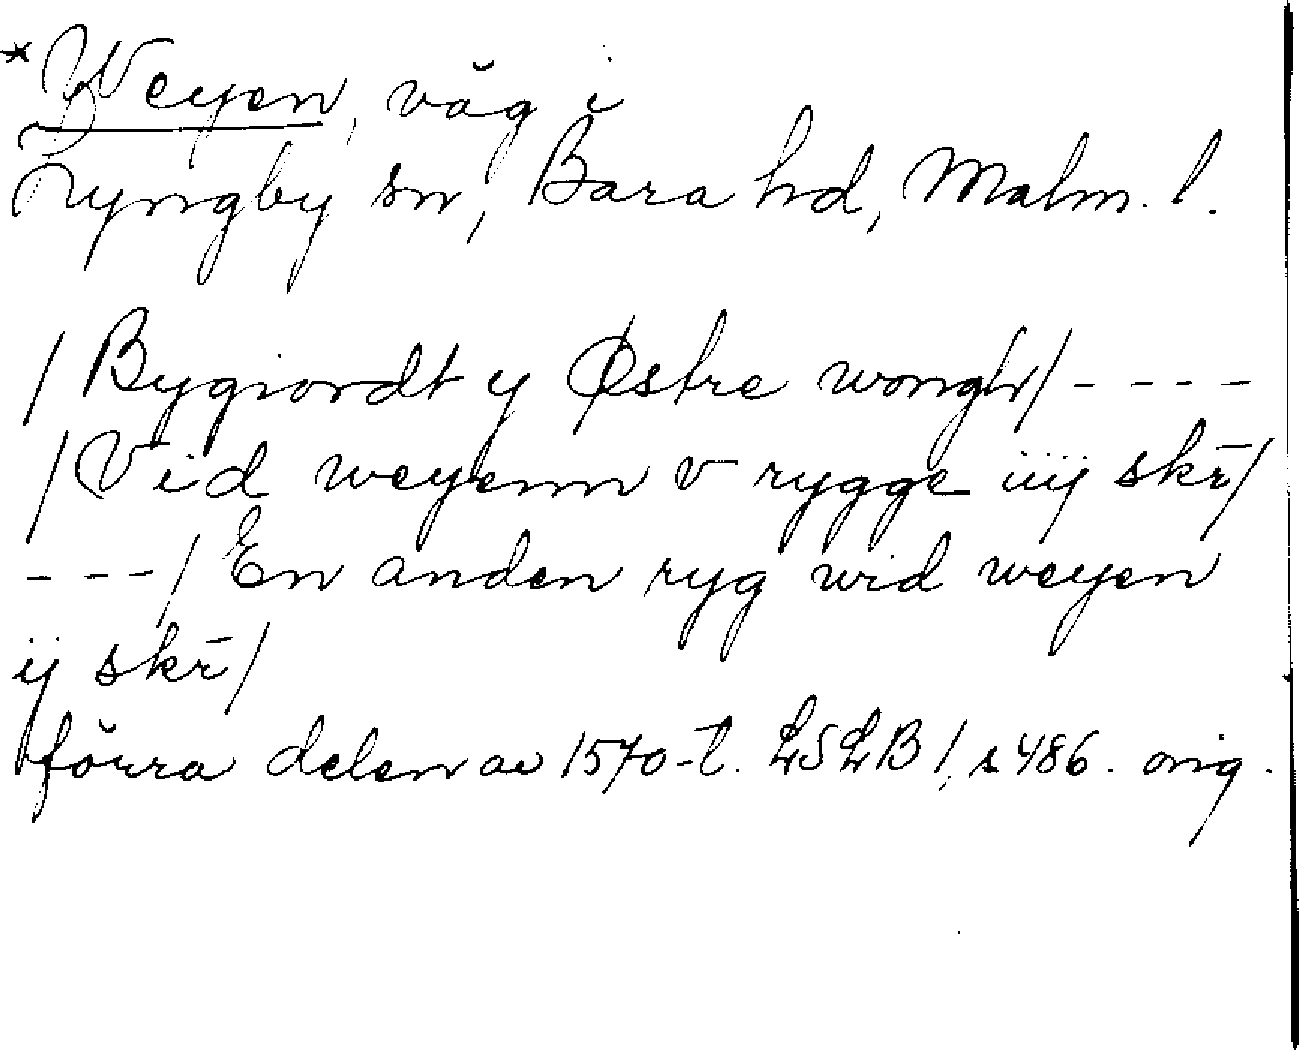 * Weyen, väg i
Lyngby sn, Bara hd, Malm. l.
/ Bygiordt y Østre wongh / - - - -
/ Vid weyenn v rygge iiij skr̄ /
- - - / En anden ryg wid weyen
ij skr̄ /
förra delen av 1570-t. LSLB 1, s 486. orig.